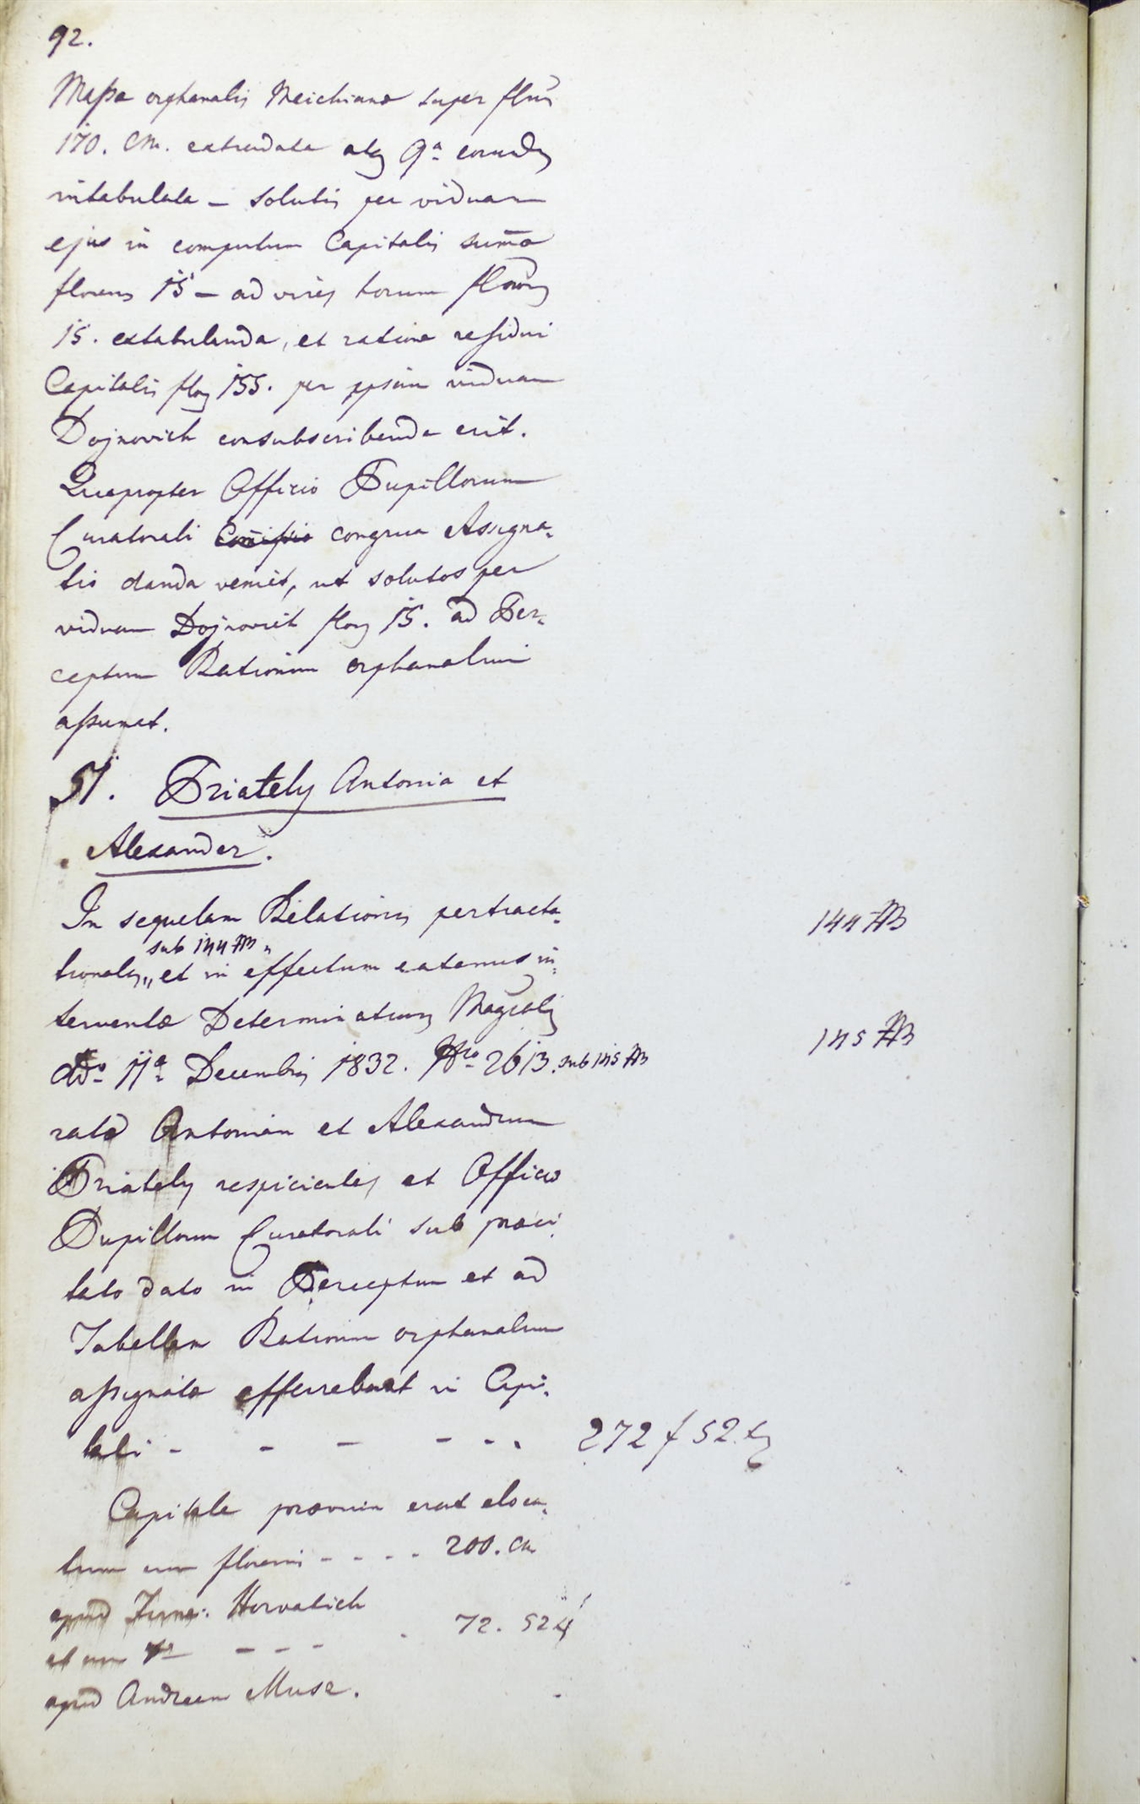 92.
Massa orphanalis Meichiana super flnis
170. CM. extradata atq 9a ejusdem
intabulata – solutis per viduam
ejus in computum Capitalis summa
florenis 15 – ad vires horum florenorum
15. extabulanda, et ratione residui
Capitalis flor 155. per ipsam viduam
Dojnovich consubscribenda erit.
Quapropter Officio Pupillorum
Curatorali congrua Assigna-
tio danda veniet, ut solutos per
viduam Dojnovich flor 15. ad Per-
ceptum Rationum orphanalium
assumat.
51. Priately Antonia et
Alexander.
In sequelam Relationis pertracta-
144 AB
sub 144 AB
tionalis, et in effectum eatenus in-
terventæ Determinationis Magtralis
145 AB
ddo 11a Decembris 1832. Nro 2613. sub 145 AB
ratæ Antoniam et Alexandrum
Priately respicientes et Officio
Pupillorum Curatorali sub præci-
tato dato in Perceptum et ad
Tabellam Rationum orphanalium
assignatæ efferrebant in Capi-
tali - - - - - - 272 f 52 x
Capitale prævium erat eloca-
tum cum florenis - - - - 200. CM
apud Horvatich
et cum - - - 72. 52 x
apud Andream Musa.